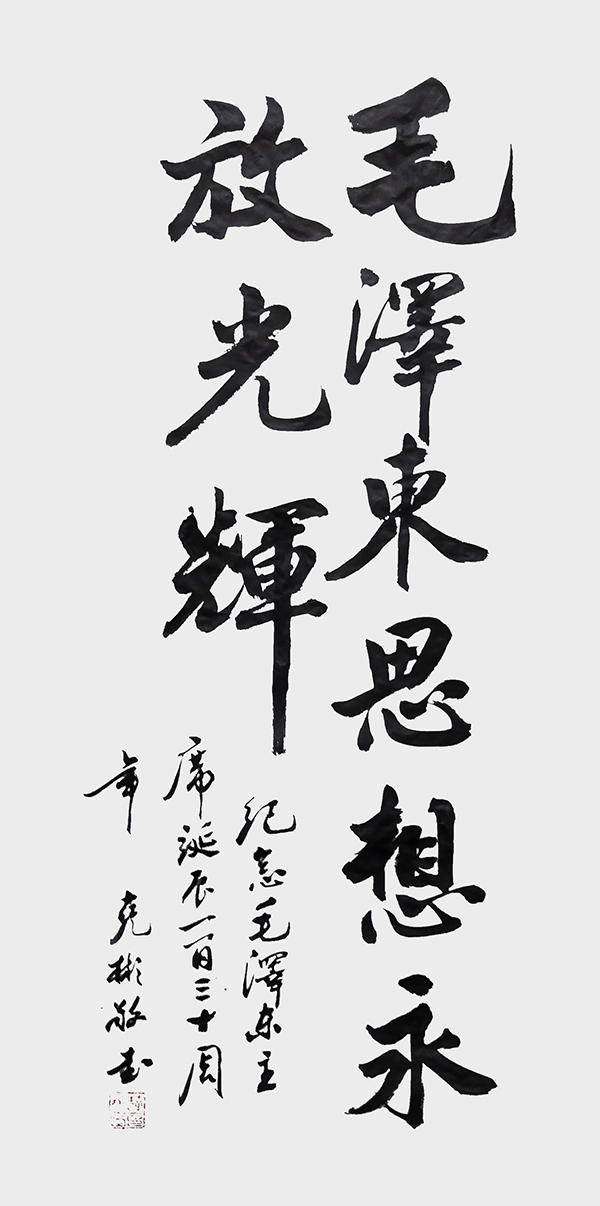 毛澤東思想永
放光輝
紀念毛澤東主
席誕辰一百三十周
年 堯彬敬书